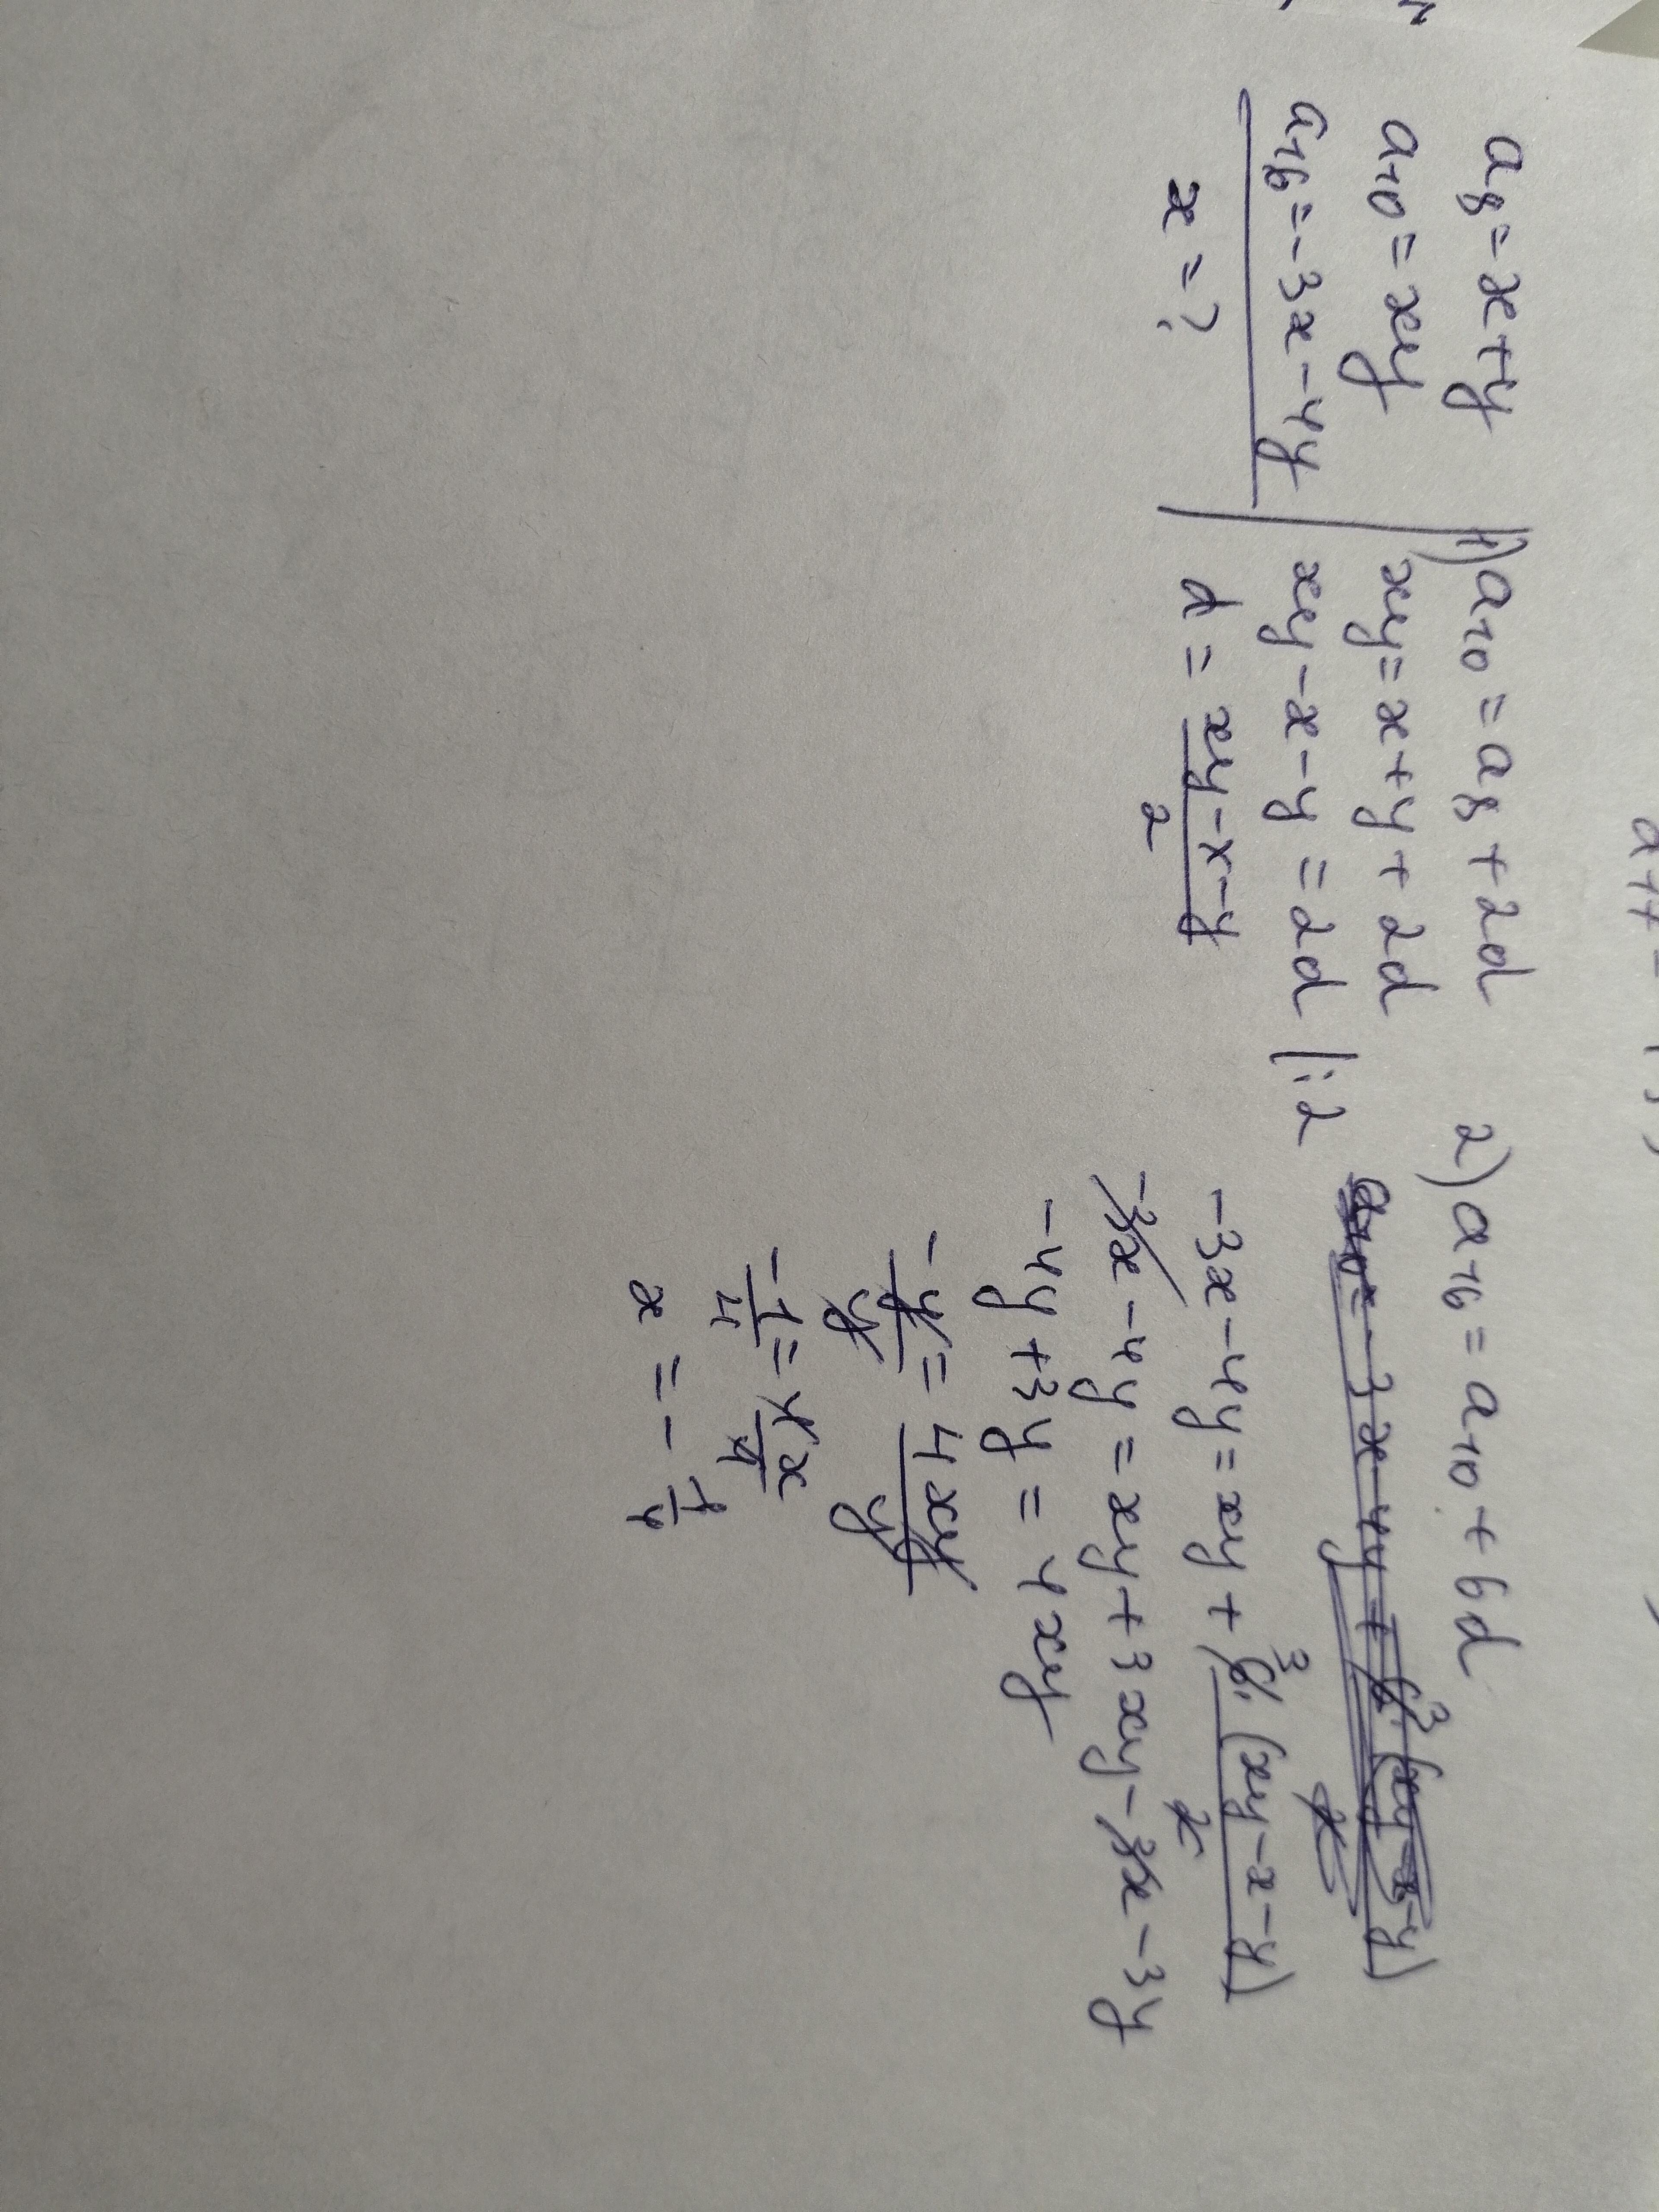 a₈ = x + y
a₁₀ = xy
a₁₆ = -3x - 4y
x = ?
1) a₁₀ = a₈ + 2d
xy = x + y + 2d
xy - x - y = 2d |:2
d = (xy - x - y)/2
2) a₁₆ = a₁₀ + 6d
-3x - 4y = xy + 6³ · (xy - x - y)/2
-3x - 4y = xy + 3xy - 3x - 3y
-4y + 3y = 4xy
-y/y = 4xy/y
-1/4 = 4x/4
x = -1/4